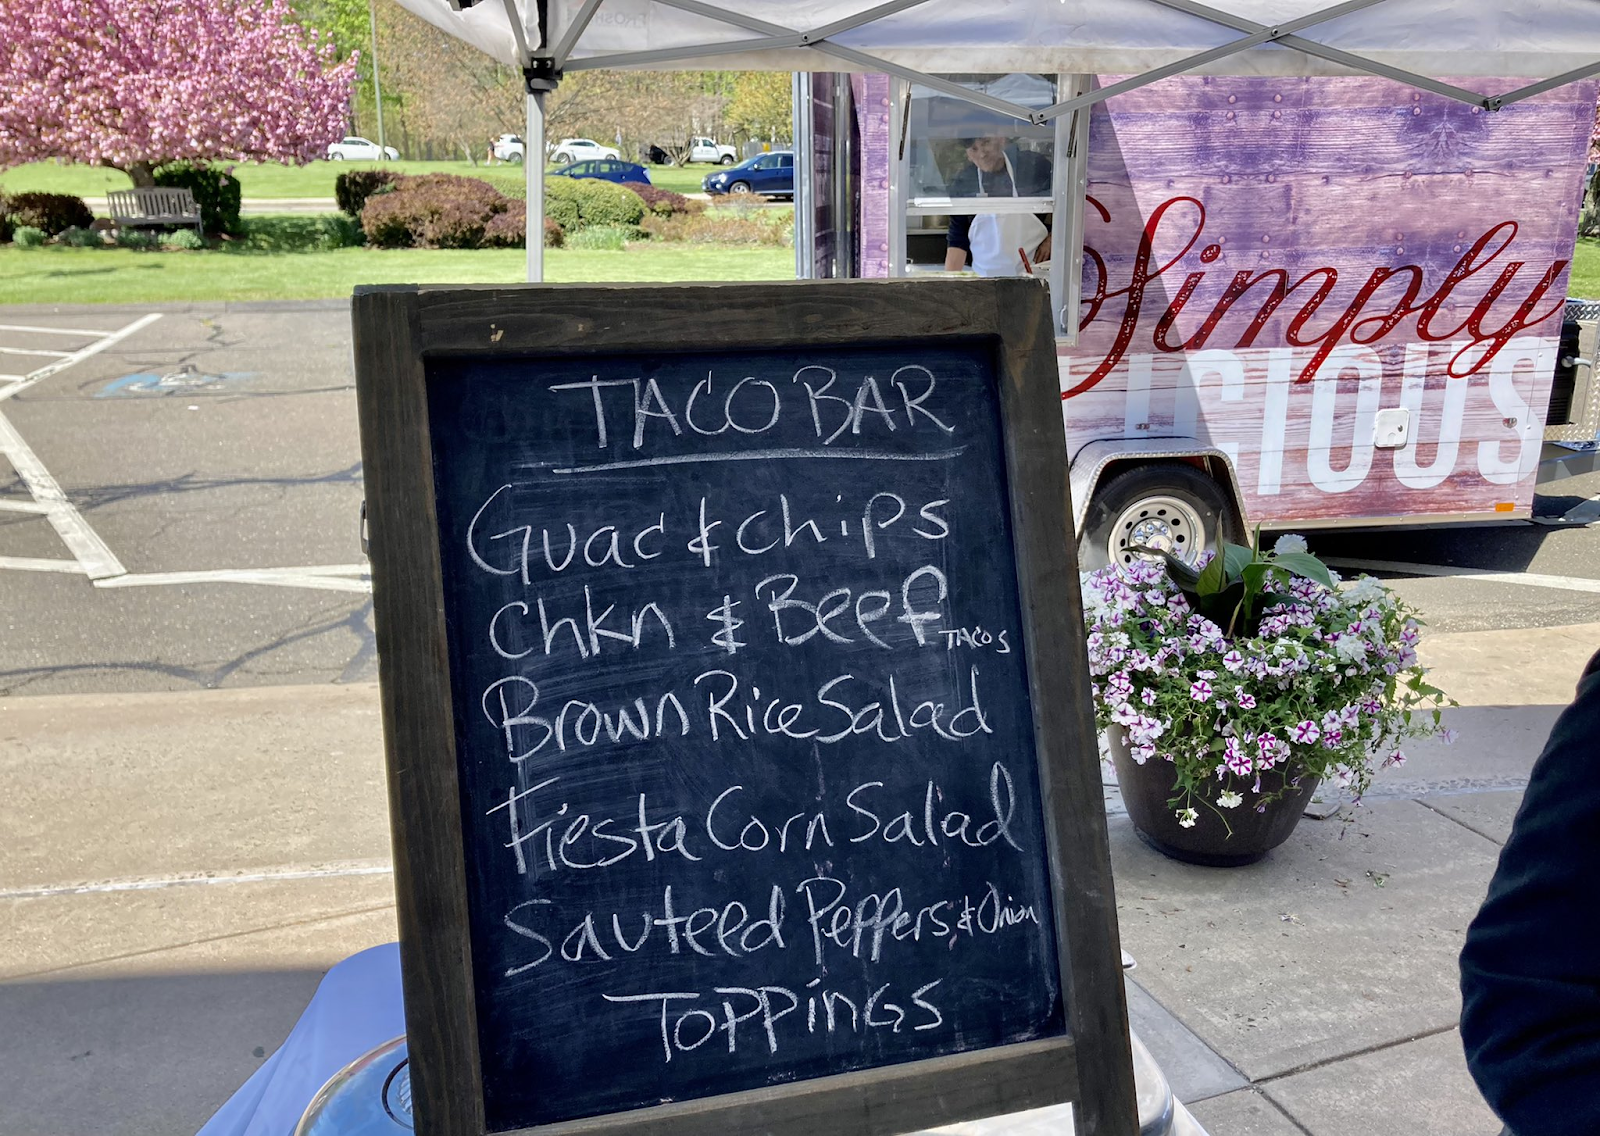 TACO BAR
Guac & chips
Chkn & Beef TACOS
Brown Rice Salad
Fiesta Corn Salad
Sauteed Peppers & Onion
TOPPiNGS
Simply
LICIOUS